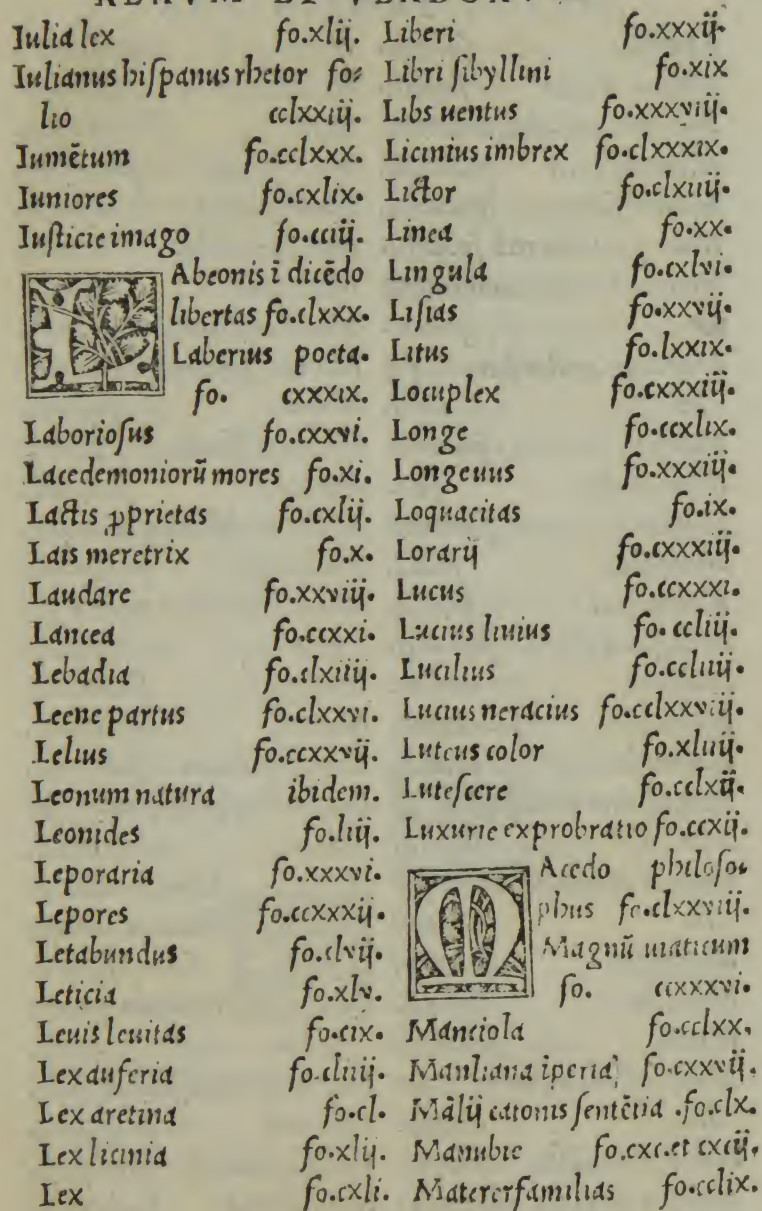 RERVM ET VERBORVM
Iulia lex fo.xlij.
Iulianus hiſpanus rhetor fo⸗
lio cclxxiij.
Iumētum fo.cclxxx.
Iuniores fo.cxlix.
Iuſticie imago fo.cciij.
LAbeonis ī dicēdo
libertas fo.clxxx.
Laberius poeta.
fo. cxxxix.
Laborioſus fo.cxxvi.
Lacedemoniorū mores fo.xi.
Lactis ꝓprietas fo.cxlij.
Lais meretrix fo.x.
Laudare fo.xxviij.
Lancea fo.ccxxi.
Lebadia fo.clxiiij.
Leene partus fo.clxxvi.
Lelius fo.ccxxvij.
Leonum natura ibidem.
Leonides fo.liij.
Leporaria fo.xxxvi.
Lepores fo.ccxxxij.
Letabundus fo.clvij.
Leticia fo.xlv.
Leuis leuitas fo.cix.
Lex auferia fo.cliiij.
Lex aretina fo.cl.
Lex licinia fo.xlij.
Lex fo.cxli.
Liberi fo.xxxij.
Libri ſibyllini fo.xix
Libs uentus fo.xxxviij.
Licinius imbrex fo.clxxxix.
Lictor fo.clxiiij.
Linea fo.xx.
Lingula fo.cxlvi.
Liſias fo.xxvij.
Litus fo.lxxix.
Locuplex fo.cxxxiij.
Longe fo.ccxlix.
Longeuus fo.xxxiij.
Loquacitas fo.ix.
Lorarij fo.cxxxiij.
Lucus fo.ccxxxi.
Lucius liuius fo.ccliij.
Lucilius fo.ccliiij.
Lucius neracius fo.cclxxviij.
Luteus color fo.xliij.
Luteſcere fo.cclxij.
Luxurie exprobratio fo.ccxij.
MAcedo philoſo⸗
phus fo.clxxviij.
Magnū uiaticum
fo. ccxxxvi.
Manciola fo.cclxx.
Manliana īperia fo.cxxvij.
Mālij catonis ſentētia .fo.clx.
Manubie fo.cxc.et cxcij.
Matererfamilias fo.cclix.